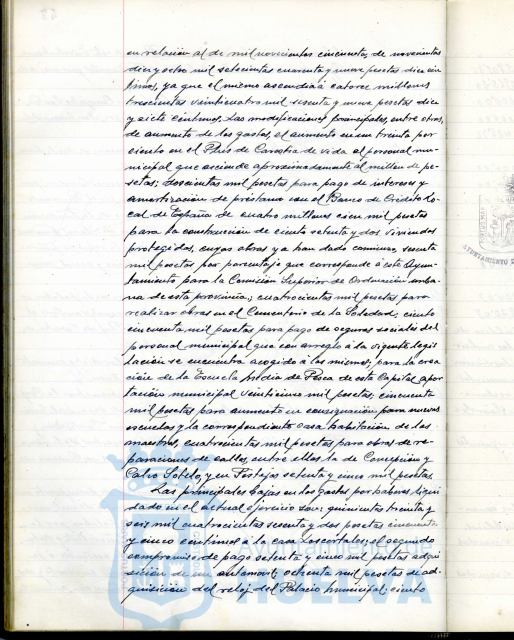 en relación al de mil novecientos cincuenta, de novecientas
diez y ocho mil setecientas cuarenta y nueve pesetas diez cén
timos, ya que el mismo ascendía a catorce millones
trescientas veinticuatro mil sesenta y nueve pesetas diez
y siete céntimos. Las modificaciones principales, entre otras,
de aumento de los gastos, el aumento en un treinta por
ciento en el Plus de Carestía de vida al personal mu-
nicipal que asciende aproximadamente al millón de pe-
setas; doscientas mil pesetas para pago de intereses y
amortización de préstamo con el Banco de Crédito Lo-
cal de España de cuatro millones cien mil pesetas
para la construcción de ciento setenta y dos viviendas
protegidas, cuyas obras ya han dado comienzo, sesenta
mil pesetas por porcentaje que corresponde a este Ayun-
tamiento para la Comisión Superior de Ordenación urba-
na de esta provincia; cuatrocientas mil pesetas para
realizar obras en el Cementerio de la Soledad; ciento
cincuenta mil pesetas para pago de seguros sociales del
personal municipal que con arreglo a la vigente legis
lación se encuentra acogido a los mismos; para la crea
ción de la Escuela Media de Pesca de esta Capital apor
tación municipal veinticinco mil pesetas; cincuenta
mil pesetas para aumento en consignación para nuevas
escuelas y la correspondiente casa habitación de los
maestros, cuatrocientas mil pesetas para obras de re-
paraciones de calles, entre ellas la de Concepción y
Calvo Sotelo, y en Festejos setenta y cinco mil pesetas.
Las principales bajas en los Gastos por haberse liqui
dado en el actual ejercicio son: quinientas treinta y
seis mil cuatrocientas sesenta y dos pesetas cincuenta
y cinco céntimos a la casa Lascortales; el segundo
compromiso de pago setenta y cinco mil pesetas adqui
sición de un automóvil; ochenta mil pesetas de ad-
quisición del reloj del Palacio Municipal; ciento
Ayuntamiento
HUELVA